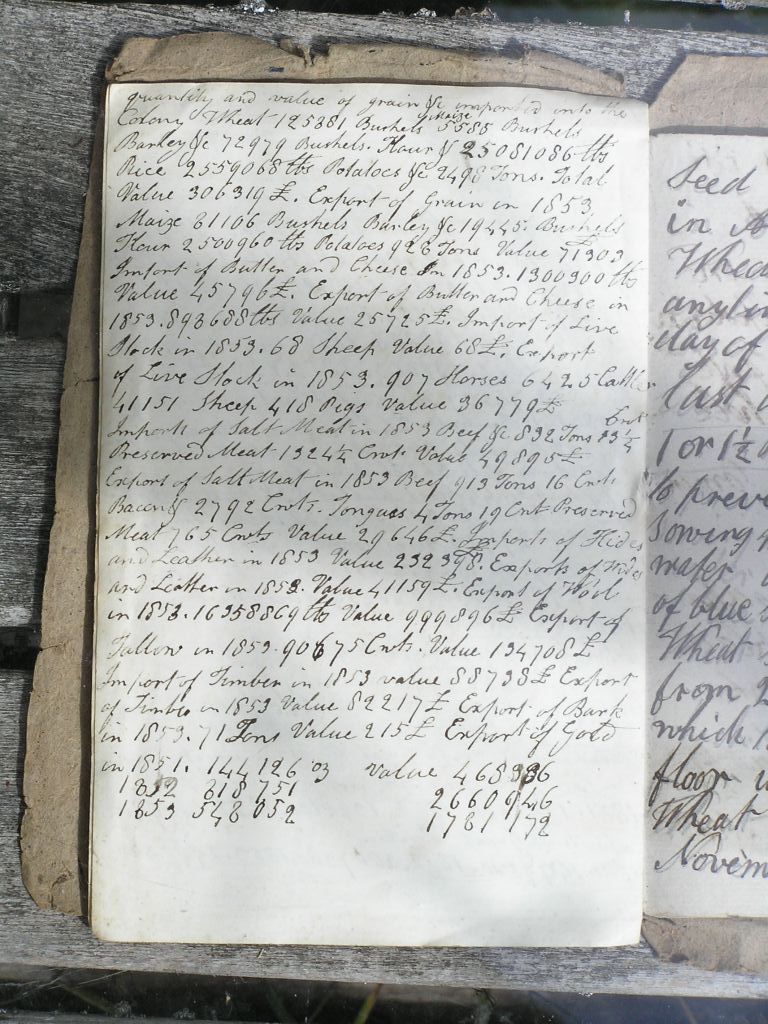 quantity and value of grain &c imported into the
Colony Wheat 125381 Bushels Maize 5585 Bushels
Barley &c 72979 Bushels. Flour & 25081086 lbs
Rice 2559068 lbs Potatoes &c 2498 Tons. Total
Value 306319 £. Export of Grain in 1853
Maize 81106 Bushels Barley &c 19445. Bushels
Flour 2500960 lbs Potatoes 928 Tons Value 71303 £
Import of Butter and Cheese in 1853. 1300300 lbs
Value 45796 £. Export of Butter and Cheese in
1853. 893688 lbs Value 25725 £. Import of Live
Stock in 1853. 68 Sheep Value 68 £. Export
of Live Stock in 1853. 907 Horses 6425 Cattle
41151 Sheep 418 Pigs Value 36779 £
Imports of Salt Meat in 1853 Beef &c 832 Tons 13 1/4 Cwt
Preserved Meat 1324 1/2 Cwt. Value 49895 £
Export of Salt Meat in 1853 Beef 913 Tons 16 Cwts
Bacon & 2792 Cwts. Tongues 4 Tons 19 Cwt Preserved
Meat 765 Cwts Value 29646 £. Imports of Hides
and Leather in 1853 Value 232398 £. Exports of Hides
and Leather in 1853. Value 41159 £. Export of Wool
in 1853. 16358869 lbs Value 999896 £ Export of
Tallow in 1853. 90675 Cwts. Value 134708 £
Import of Timber in 1853 value 88738 £ Export
of Timber in 1853 Value 82217 £ Export of Bark
in 1853. 71 Tons Value 215 £ Export of Gold
in 1851. 144126 oz value 468336
1852 818751 2660946
1853 548052 1781172
Seed
in
Wheat
day of
last
1 or 1½
to preve
sowing
water
of blue
Wheat
from 2
which
floor
Wheat
Novem